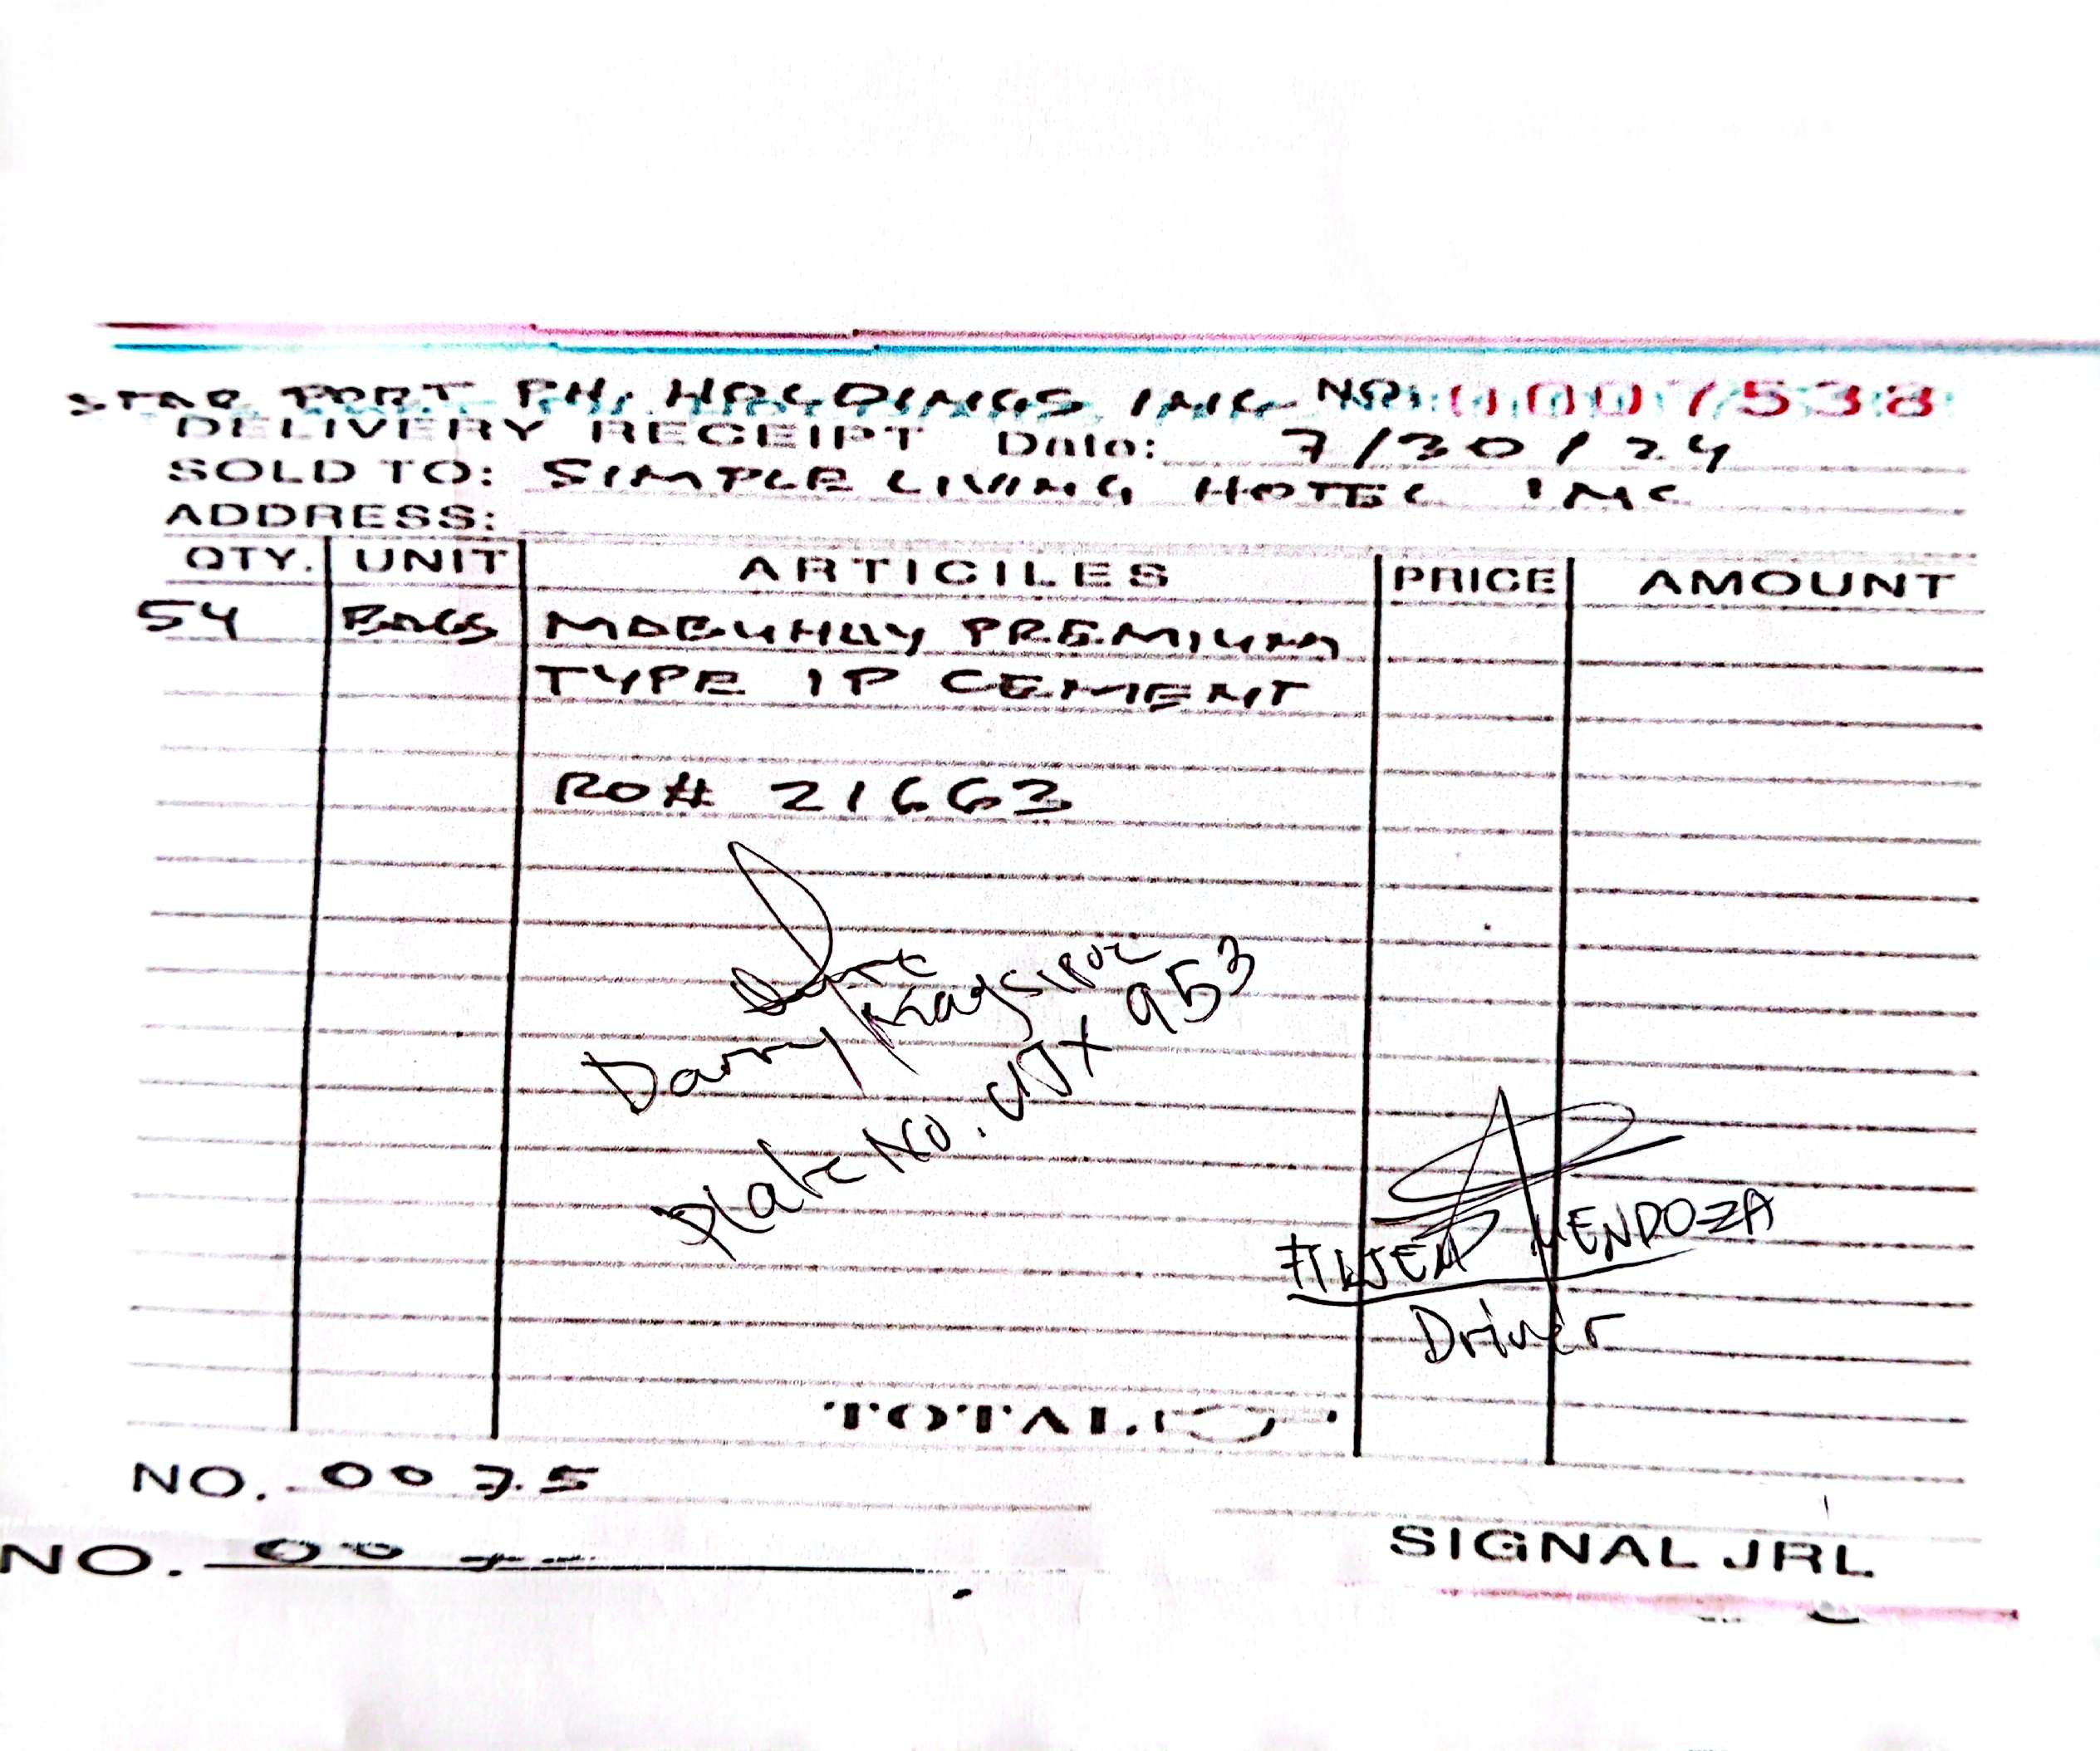 STAR PORT PH, HOLDINGS INC NO:
DELIVERY RECEIPT Date: 7/30/24
SOLD TO: SIMPLE LIVING HOTEL INC
ADDRESS:
QTY. UNIT ARTICILES PRICE AMOUNT
54 BAGS MABUHAY PREMIUM
TYPE 1P CEMENT
RO# 21663
Danny
Plate No. 953
MENDOZA
Driver
TOTAL
NO. 0075
NO. 00
SIGNAL JRL